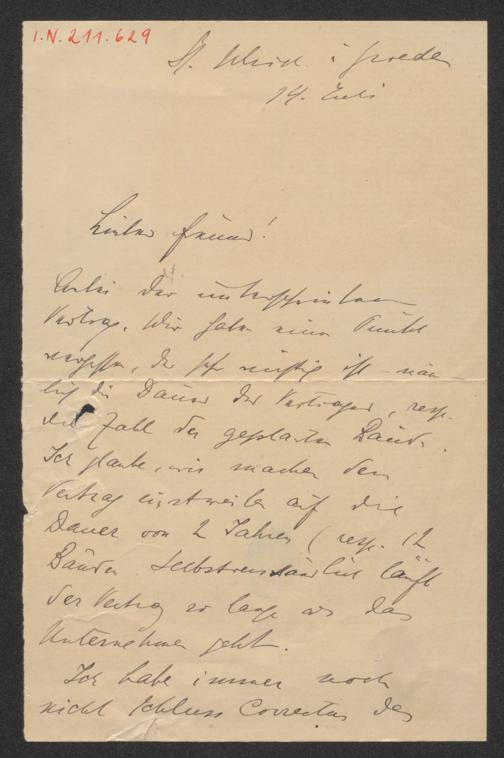 I.N. 211.629
St. Ulrich i Groeden
14. Juli
Lieber Freund!
Anbei der unterschriebene
Vertrag. Wir haben einen Punkt
vergessen, der sehr wichtig ist – näm-
lich die Dauer des Vertrages, resp.
die Zahl der geplanten Bände.
Ich glaube, wir machen den
Vertrag einstweilen auf die
Dauer von 2 Jahren (resp. 12
Bänden. Selbstverständlich läuft
der Vertrag so lange als das
Unternehmen geht.
Ich habe immer noch
nicht Schluss Correctur des